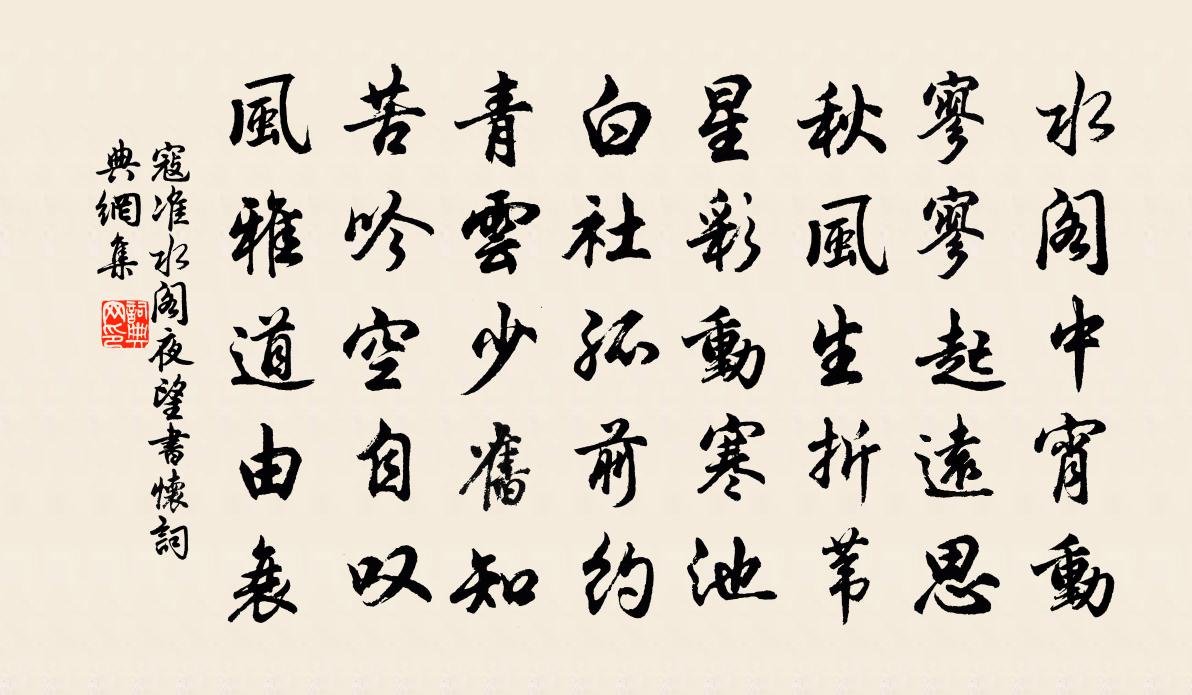 水阁中宵動
寥寥起遠思
秋風生折苇
星彩動寒池
白社孤前約
青雲少舊知
苦吟空自叹
風雅道由衰
寇准水阁夜望書懷詞
典網集
詞典
网印